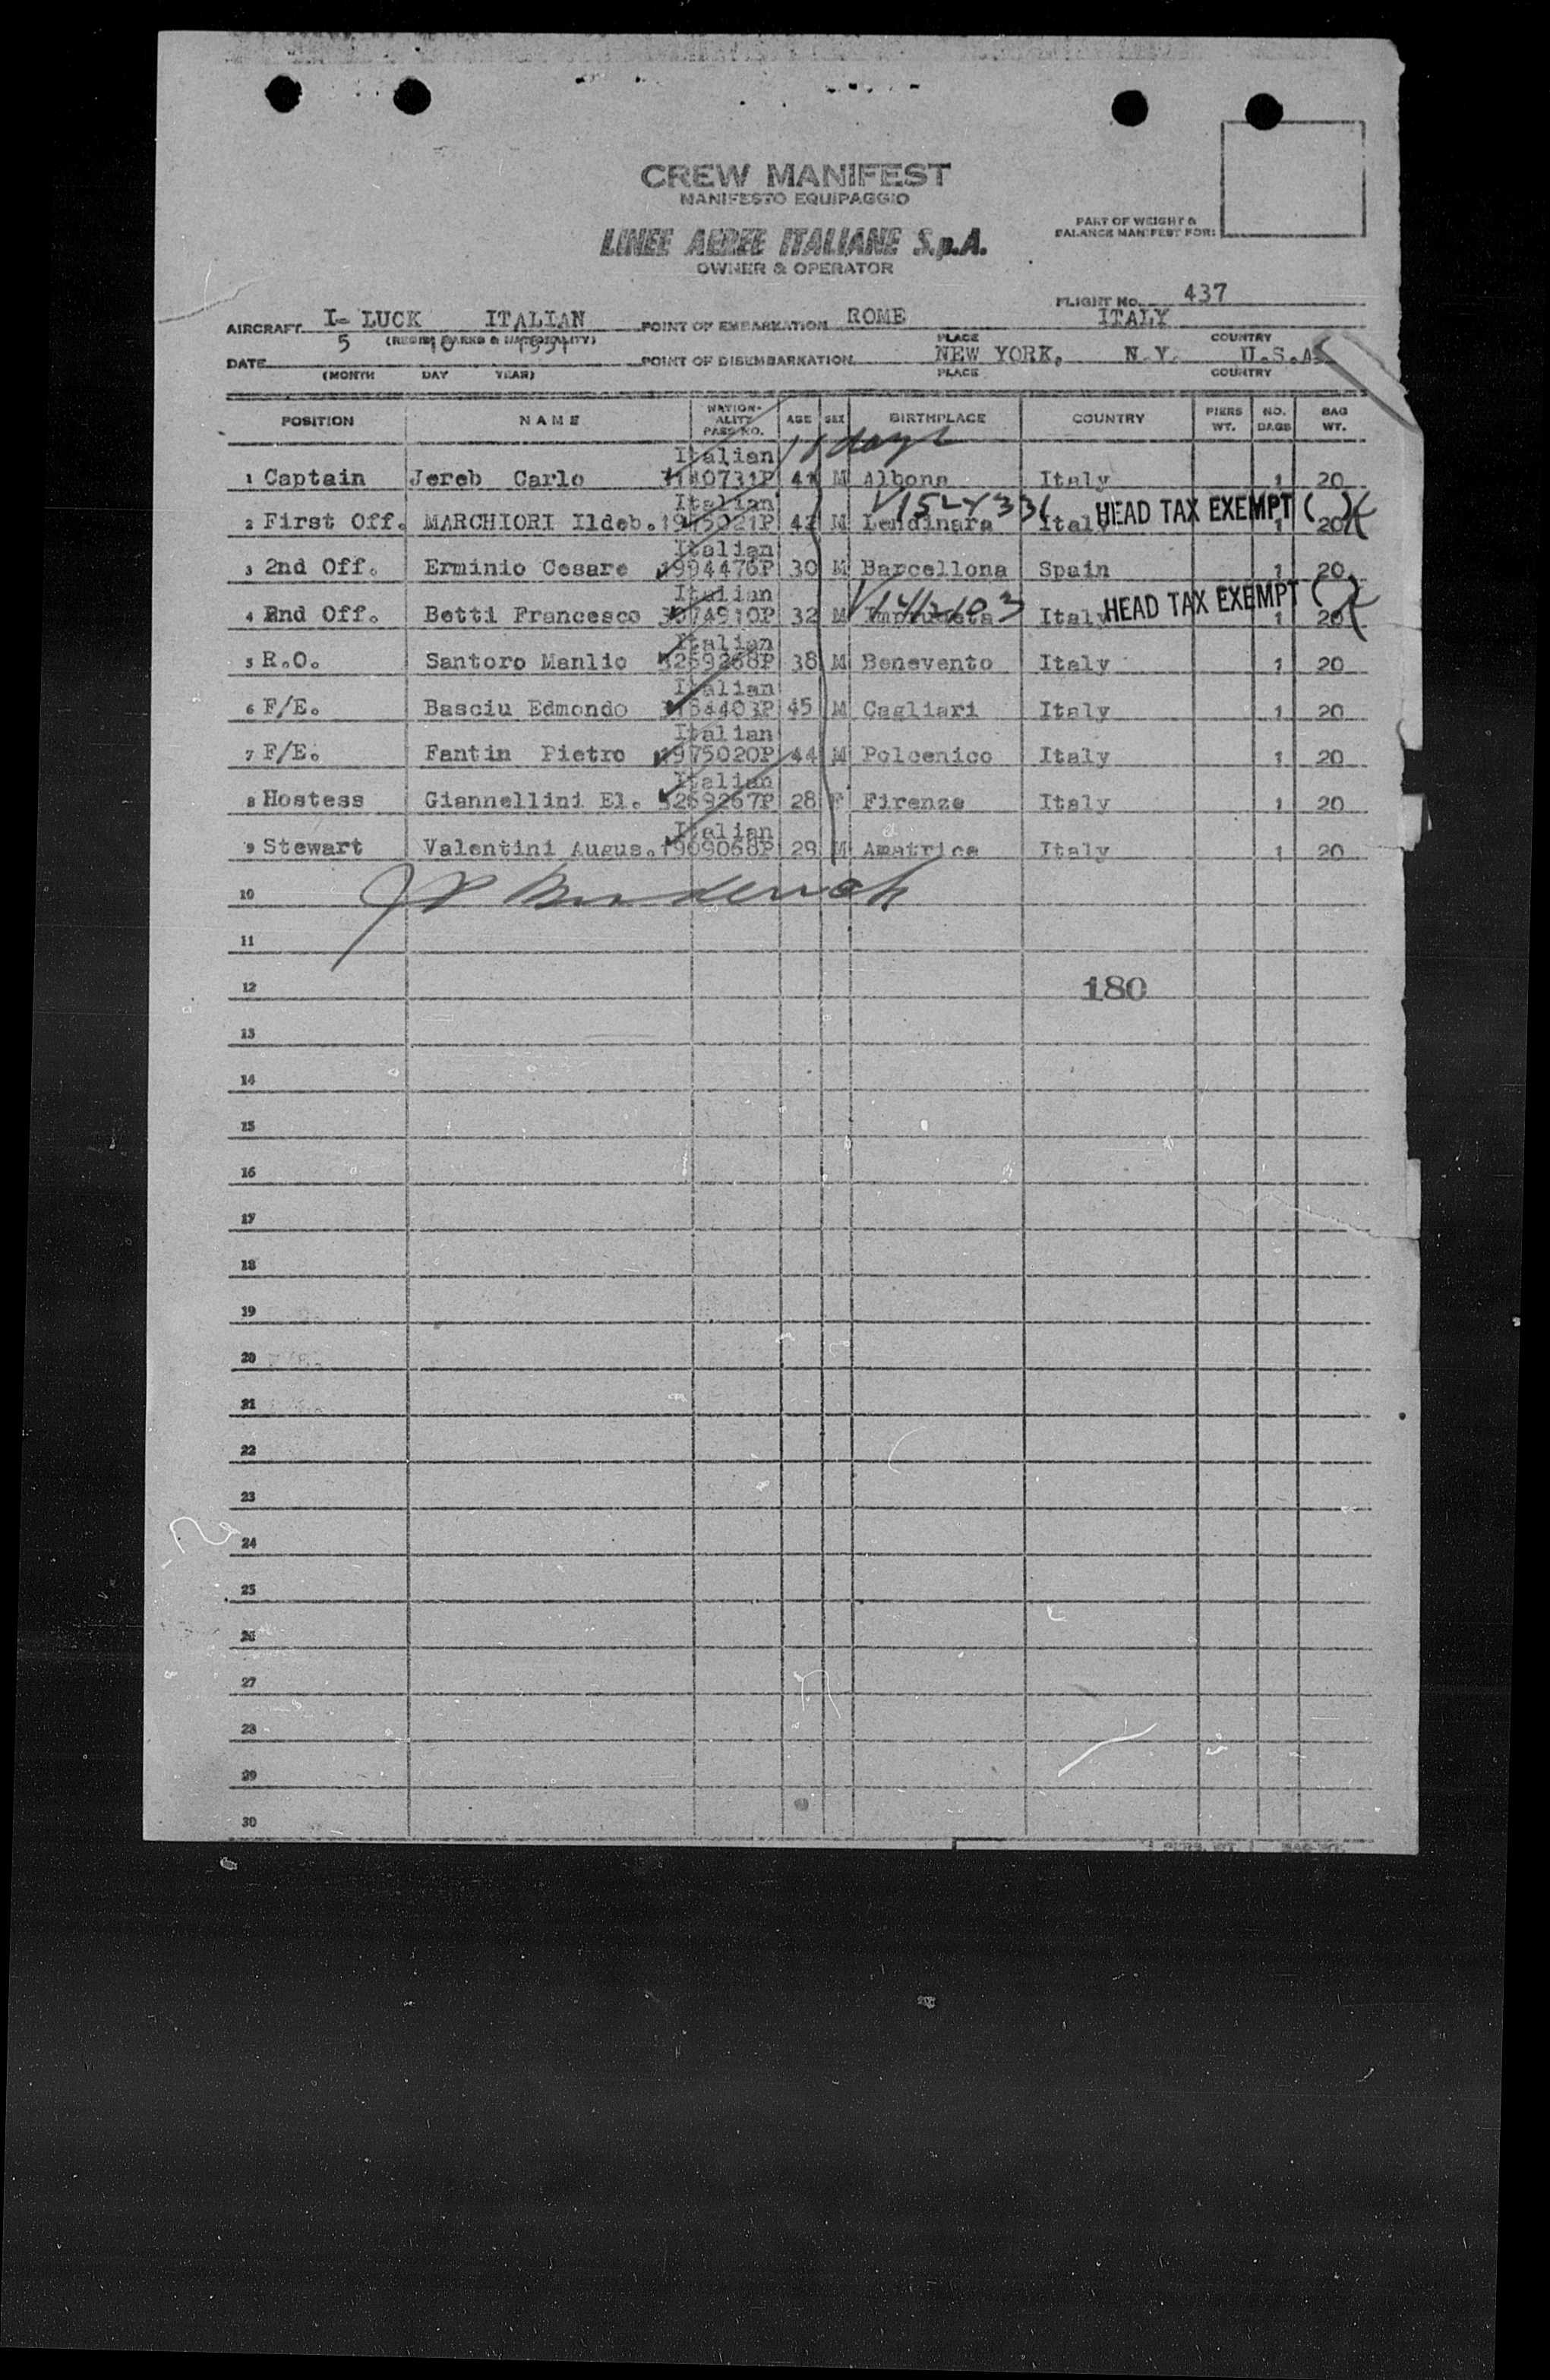 CREW MANIFEST
MANIFESTO EQUIPAGGIO
LINEE AEREE ITALIANE S.p.A.
OWNER & OPERATOR
PART OF WEIGHT &
BALANCE MANIFEST FOR:
FLIGHT NO. 437
AIRCRAFT I- LUCK ITALIAN POINT OF EMBARKATION ROME ITALY
(REGIS. MARKS & NATIONALITY) PLACE COUNTRY
DATE 5 10 1951 POINT OF DISEMBARKATION NEW YORK, N.Y. U.S.A.
(MONTH DAY YEAR) PLACE COUNTRY
POSITION NAME NATION-ALITY PASS NO. AGE SEX BIRTHPLACE COUNTRY PIERS WT. NO. BAGS BAG WT.
Italian days
1 Captain Jereb Carlo 41 M Albona Italy 1 20
Italian
2 First Off. MARCHIORI Ildeb. 1975021P 42 M Lendinara Italy HEAD TAX EXEMPT ( ) 1 20
Italian
3 2nd Off. Erminio Cesare 1994476P 30 M Barcellona Spain 1 20
Italian
4 2nd Off. Betti Francesco 3074910P 32 M Italy HEAD TAX EXEMPT ( ) 1 20
Italian
5 R.O. Santoro Manlio 3269268P 38 M Benevento Italy 1 20
Italian
6 F/E. Basciu Edmondo 45 M Cagliari Italy 1 20
Italian
7 F/E. Fantin Pietro 1975020P 44 M Polcenico Italy 1 20
Italian
8 Hostess Giannellini El. 3269267P 28 F Firenze Italy 1 20
Italian
9 Stewart Valentini Augus. 1909068P 29 M Amatrice Italy 1 20
10
11
12 180
13
14
15
16
17
18
19
20
21
22
23
24
25
26
27
28
29
30